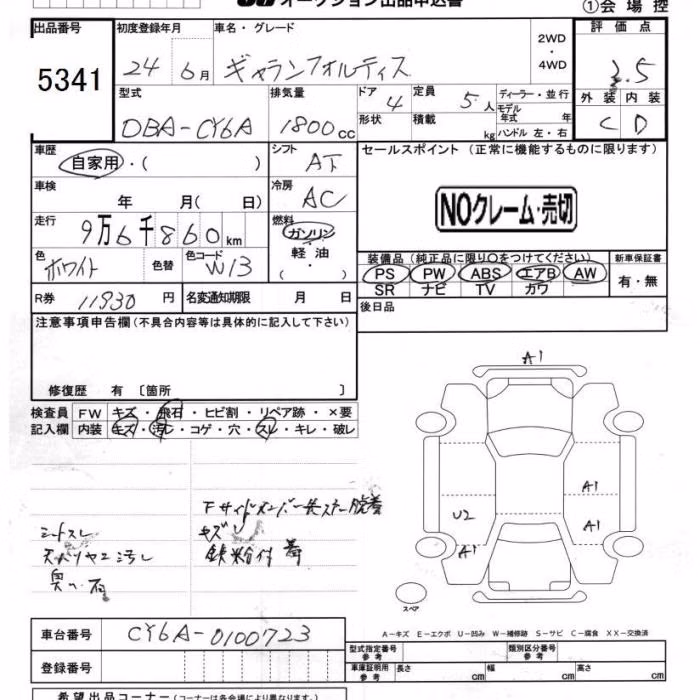 オークション出品申込書 ①会場控
出品番号 初度登録年月 車名・グレード 2WD・4WD 評価点
5341 24年6月 ギャランフォルティス 3.5
型式 排気量 ドア 4 定員 5人 ディーラー・並行 外装 内装
DBA-CY6A 1800cc 形状 積載 kg モデル年式 年 ハンドル 左・右 C D
車歴 自家用・( ) シフト AT セールスポイント (正常に機能するものに限ります)
車検 年 月( 日) 冷房 AC
NOクレーム・売切
走行 9万6千860km 燃料 ガソリン・軽油・( )
色 ホワイト 色替 色コード W13
装備品(純正品に限り○をつけてください) 新車保証書
PS PW ABS エアB AW 有・無
SR ナビ TV カワ
R券 11930円 名変通知期限 月 日 後日品
注意事項申告欄(不具合内容等は具体的に記入して下さい)
修復歴 有〔箇所 〕
検査員 FW キズ・飛石・ヒビ割・リペア跡・×要
記入欄 内装 キズ・汚レ・コゲ・穴・スレ・キレ・破レ
A1
A1
U2 A1
A1
シートスレ キズ
鉄粉付着
スペア
A-キズ E-エクボ U-凹み W-補修跡 S-サビ C-腐食 XX-交換済
車台番号 CY6A-0100723
型式指定番号 参考 類別区分番号 参考
登録番号 車庫証明用 参考 長さ cm 幅 cm 高さ cm
希望出品コーナー(コーナーは各会場により異なります。)